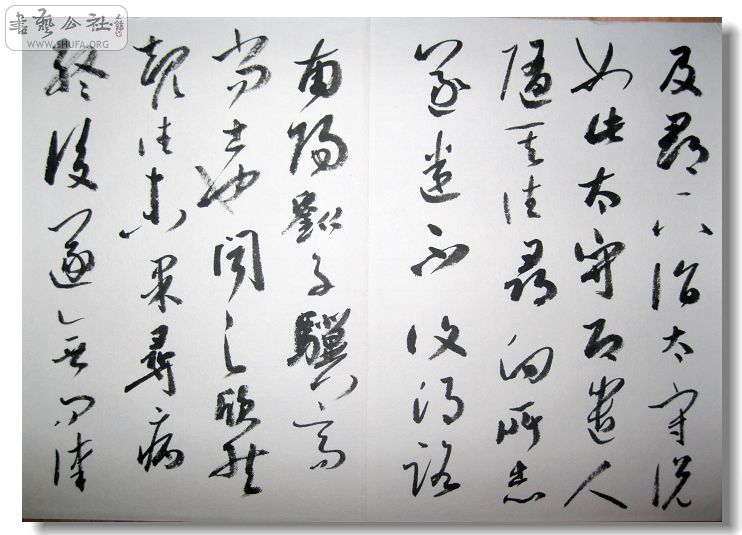 書藝公社
WWW.SHUFA.ORG
及郡下詣太守說
如此太守即遣人
隨其往尋向所志
遂迷不復得路
南陽劉子驥高
尚士也聞之欣然
規往未果尋病
終後遂無問津